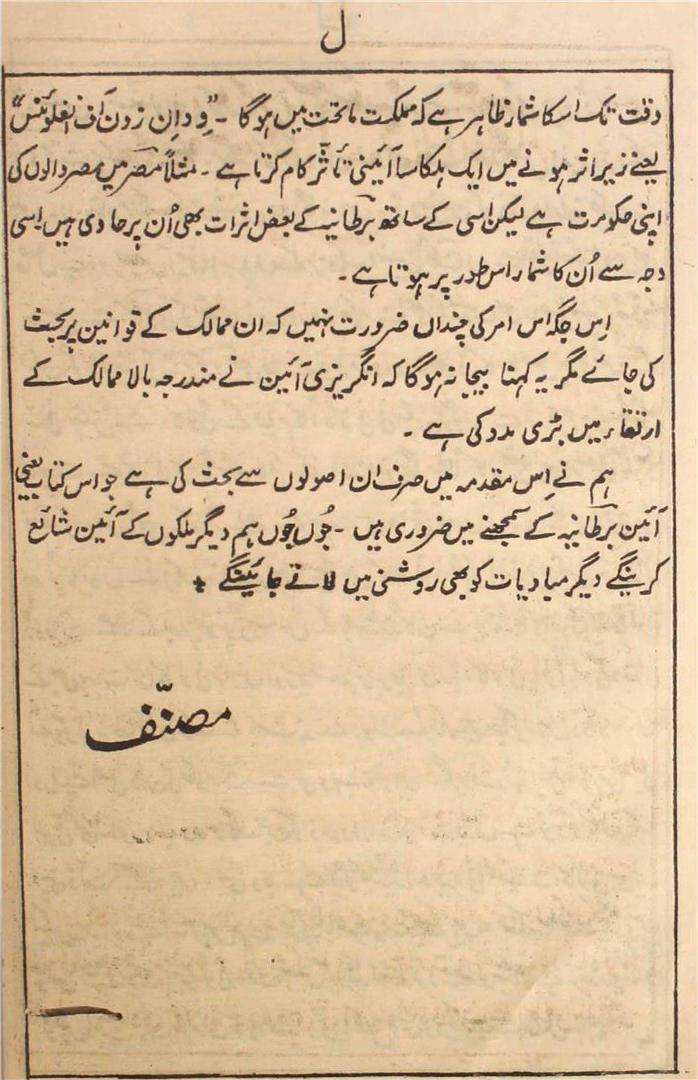 ل
وقت تک اسکا شمار ظاہر ہے کہ مملکت ماتحت میں ہوگا - "وِد اِن زون آف انفلوئنس"
یعنے زیر اثر ہونے میں ایک ہلکا سا آئینی تأثر کام کرتا ہے - مثلاً مصر میں مصر والوں کی
اپنی حکومت ہے لیکن اسی کے ساتھ برطانیہ کے بعض اثرات بھی اُن پر حاوی ہیں اسی
وجہ سے اُن کا شمار اس طور پر ہوتا ہے -
اِس جگہ اس امر کی چنداں ضرورت نہیں کہ ان ممالک کے قوانین پر بحث
کی جائے مگر یہ کہنا بیجا نہ ہوگا کہ انگریزی آئین نے مندرجہ بالا ممالک کے
ارتقاء میں بڑی مدد کی ہے -
ہم نے اِس مقدمہ میں صرف ان اصولوں سے بحث کی ہے جو اس کتاب یعنی
آئین برطانیہ کے سمجھنے میں ضروری ہیں - جُوں جُوں ہم دیگر ملکوں کے آئین شائع
کرینگے دیگر مبادیات کو بھی روشنی میں لاتے جائینگے +
مصنّف